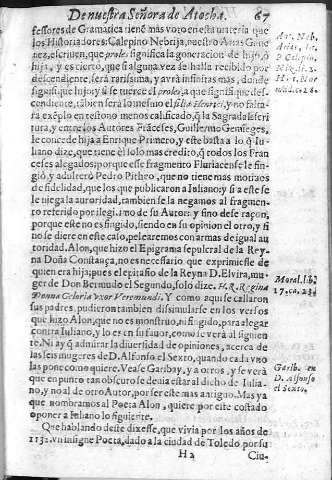 De nuestra Señora de Atocha. 67
fessores de Gramatica tiene mas voto en esta materia que
los Historiadores: Calepino Nebrija, nuestro Arias
nez, escriuen, que proles significa la generacion de hijo, ò
hija, y es cierto, que si alguna vez se halla recebido por
descendiente, serà rarissima, y avrà infinitas mas, donde
signifique hijo; y si le tuerce el proles, a que signifique des-
cendiente, tãbien serà lo mesmo el Henrici, y no falta-
rà exẽplo en testigo no menos calificado, q̃ la Sagrada Escri
tura, y entre los Autores Frãceses, Guillermo Gemieges,
le concede hija a Enrique Primero, y este basta a lo q̃ Iu-
liano dize, que tiene el solo mas credito, q̃ todos los Fran
ceses alegados: porque esse fragmento Floriacense le fin-
giò, y adulterò Pedro Pitheo, que no tiene mas motiuos
de fidelidad, que los que publicaron a Iuliano: y si a este se
le niega la autoridad, tambien se la negamos al fragmen-
to referido por ilegitimo de su Autor: y sino es de raçon,
porque este no es fingido, siendo en su opinion el otro, y si
lo se diere en este caso, pelearemos con armas de igual au
toridad. Alon, que hizo el Epigrama sepulcral de la Rey-
na Doña Constança, no es necessario que exprimiesse de
quien era hija; pues el epitafio de la Reyna D. Elvira, mu-
ger de Don Bermudo el Segundo, solo dize. H. R. Regina
Donna Geloria vxor Veremundi. Y como aqui se callaron
sus padres, pudieron tambien dissimularse en los versos
que hizo Alon, que no es monstruo, ni fingido, para alegar
contra Iuliano, y lo es en su fauor, como se verà al siguien
te. Ni ay q̃ admirar la diuersidad de opiniones, acerca de
las seis mugeres de D. Alfonso el Sexto, quando cada vno
las pone como quiere. Vease Garibay, y a otros, y se verà
que en punto tan obscuro se deuia estar al dicho de Iulia-
no, y no al de otro Autor, por ser este mas antiguo. Mas ya
que nombramos al Poeta Alon, quiere por este costado
oponer a Iuliano lo siguiente.
Que hablando deste dixesse, que viuia por los años de
1131. vn insigne Poeta, dado a la ciudad de Toledo por su
H 2 Ciu-
Ant. Neb.
Arias,
P Calepin.
Moral. lib.
17. ca. 23.
Garib. en
D. Alfonso
el Sexto.